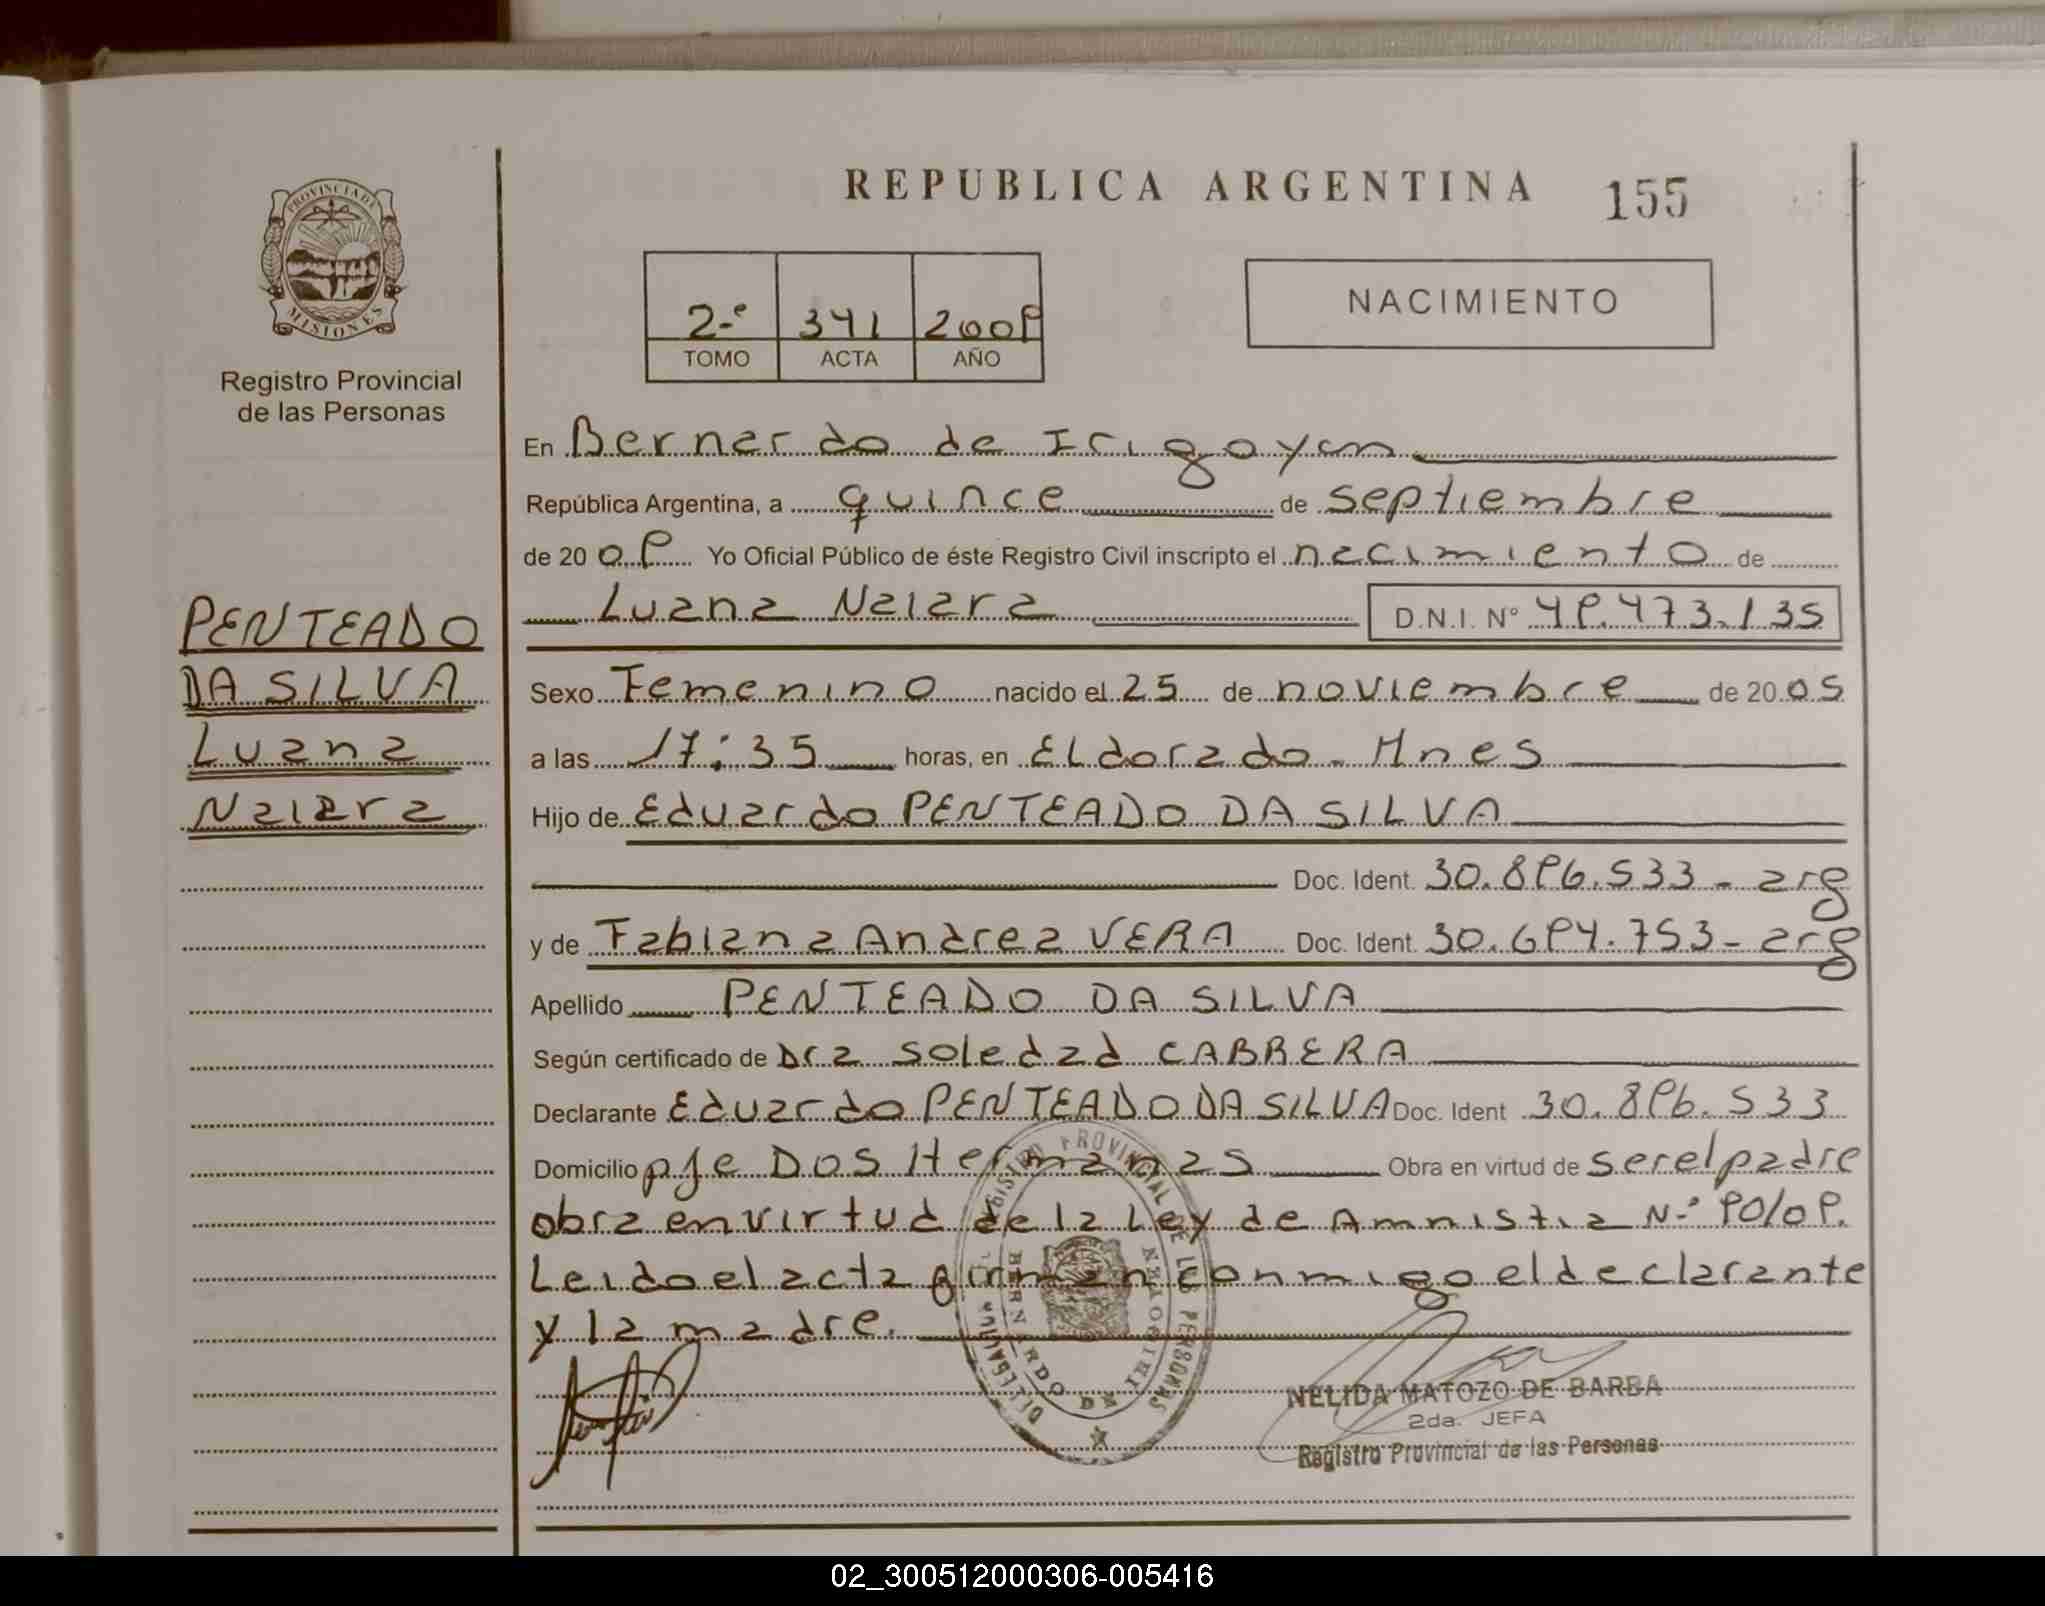 REPUBLICA ARGENTINA 155
PROVINCIA DE
MISIONES
Registro Provincial
de las Personas
2º 341 2009
TOMO ACTA AÑO
NACIMIENTO
En Bernardo de Irigoyen
República Argentina, a quince de septiembre
de 20 09 Yo Oficial Público de éste Registro Civil inscripto el nacimiento de
Luana Naiara D.N.I. Nº 49.473.135
PENTEADO
DA SILVA
Luana
Naiara
Sexo Femenino nacido el 25 de noviembre de 20 05
a las 17:35 horas, en Eldorado - Mnes
Hijo de Eduardo PENTEADO DA SILVA
Doc. Ident. 30.896.533 - arg
y de Fabiana Andrea VERA Doc. Ident. 30.694.753 - arg
Apellido PENTEADO DA SILVA
Según certificado de Dra Soledad CABRERA
Declarante Eduardo PENTEADO DA SILVA Doc. Ident 30.896.533
Domicilio pje Dos Hermanas Obra en virtud de ser el padre
obra en virtud de la Ley de Amnistia Nº 90/09.
Leido el acta firman conmigo el declarante
y la madre.
REGISTRO PROVINCIAL DE LAS PERSONAS
DELEGACION
BERNARDO DE IRIGOYEN
NELIDA MATOZO DE BARBA
2da. JEFA
Registro Provincial de las Personas
02_300512000306-005416